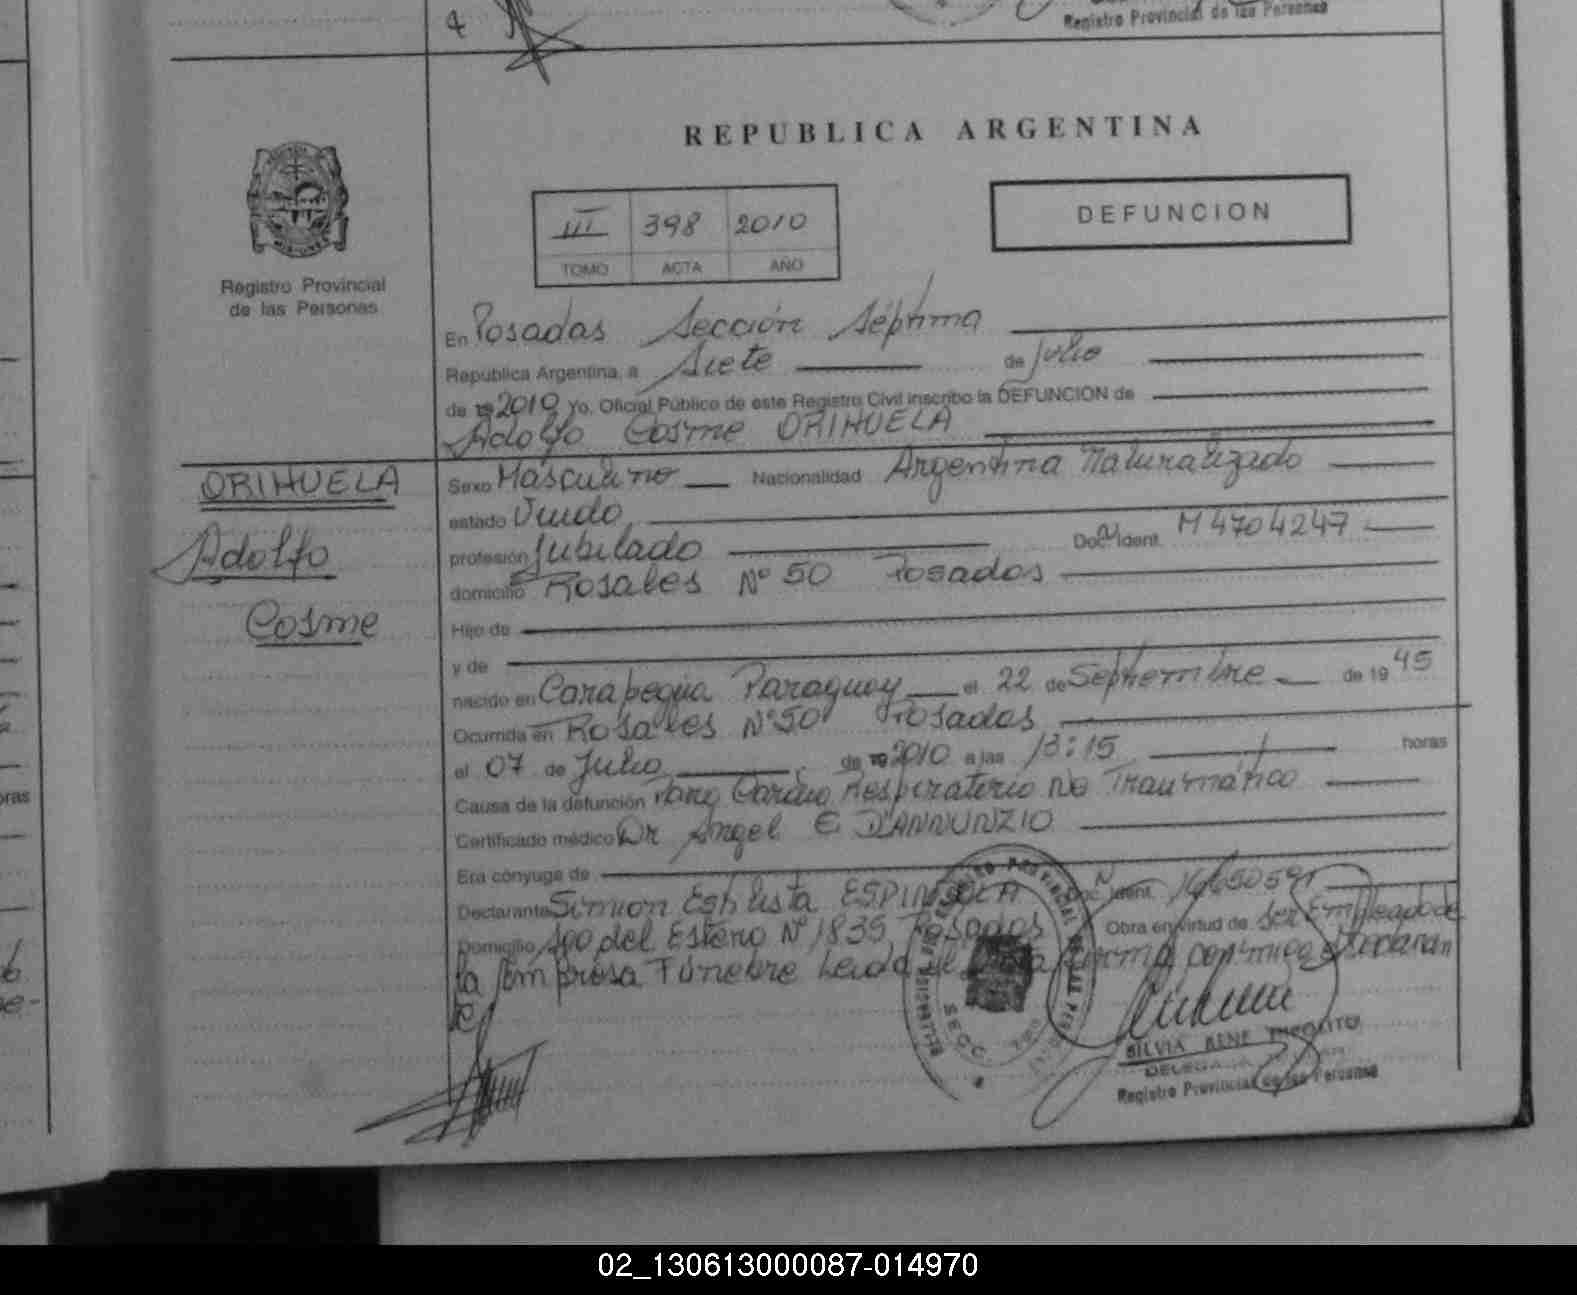 4
Registro Provincial de las Personas
REPUBLICA ARGENTINA
III 398 2010
TOMO ACTA AÑO
DEFUNCION
Registro Provincial
de las Personas
En Posadas Sección Séptima
República Argentina, a Siete de Julio
de 19 2010 Yo, Oficial Público de este Registro Civil inscribo la DEFUNCION de
Adolfo Cosme ORIHUELA
ORIHUELA
Adolfo
Cosme
Sexo Masculino Nacionalidad Argentina Naturalizado
estado Viudo
profesión Jubilado Doc. Ident. M 4704247
domicilio Rosales Nº 50 Posadas
Hijo de
y de
nacido en Carapegua Paraguay el 22 de Septiembre de 19 45
Ocurrida en Rosales Nº 50 Posadas
el 07 de Julio de 19 2010 a las 13:15 horas
Causa de la defunción Paro Cardio Respiratorio No Traumático
Certificado médico Dr Angel E D'ANNUNZIO
Era cónyuge de
Declarante Simion Estilista ESPINSOLA Doc. Ident.
Domicilio Sgo del Estero Nº 1835 Posadas Obra en virtud de Ser Empleado de
la Empresa Fúnebre Leida el acta firma conmigo el declaran
te
SILVIA RENE HIPOLITO
DELEGADA
Registro Provincial de las Personas
02_130613000087-014970